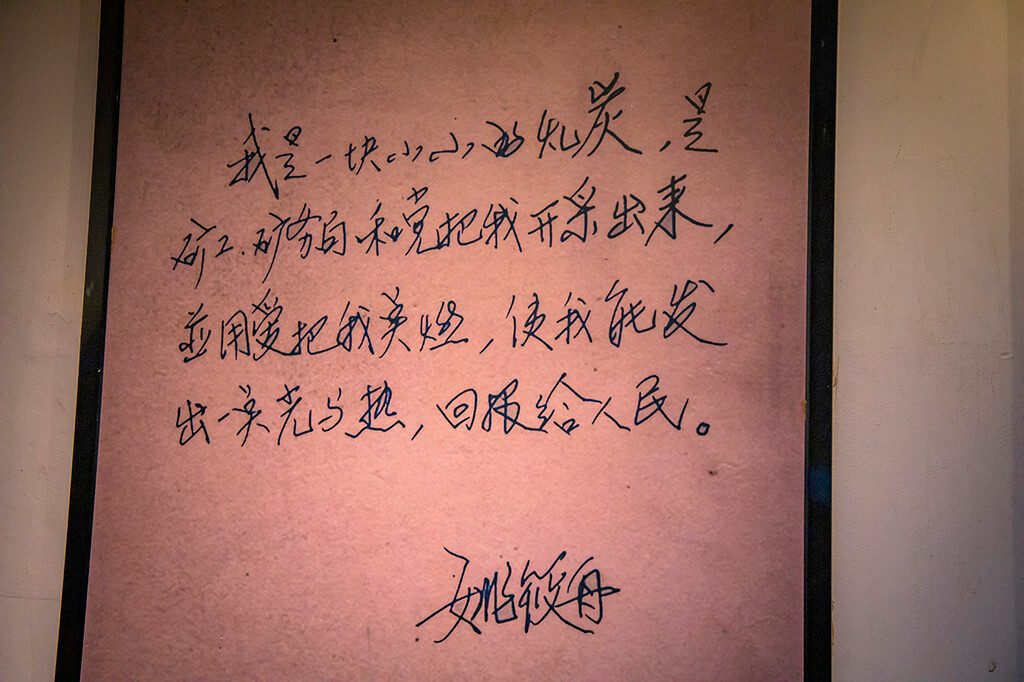 我是一块小小的煤炭，是
矿工、矿务局和党把我开采出来，
並用爱把我奌燃，使我能发
出一奌光与热，回报给人民。
姚筱舟